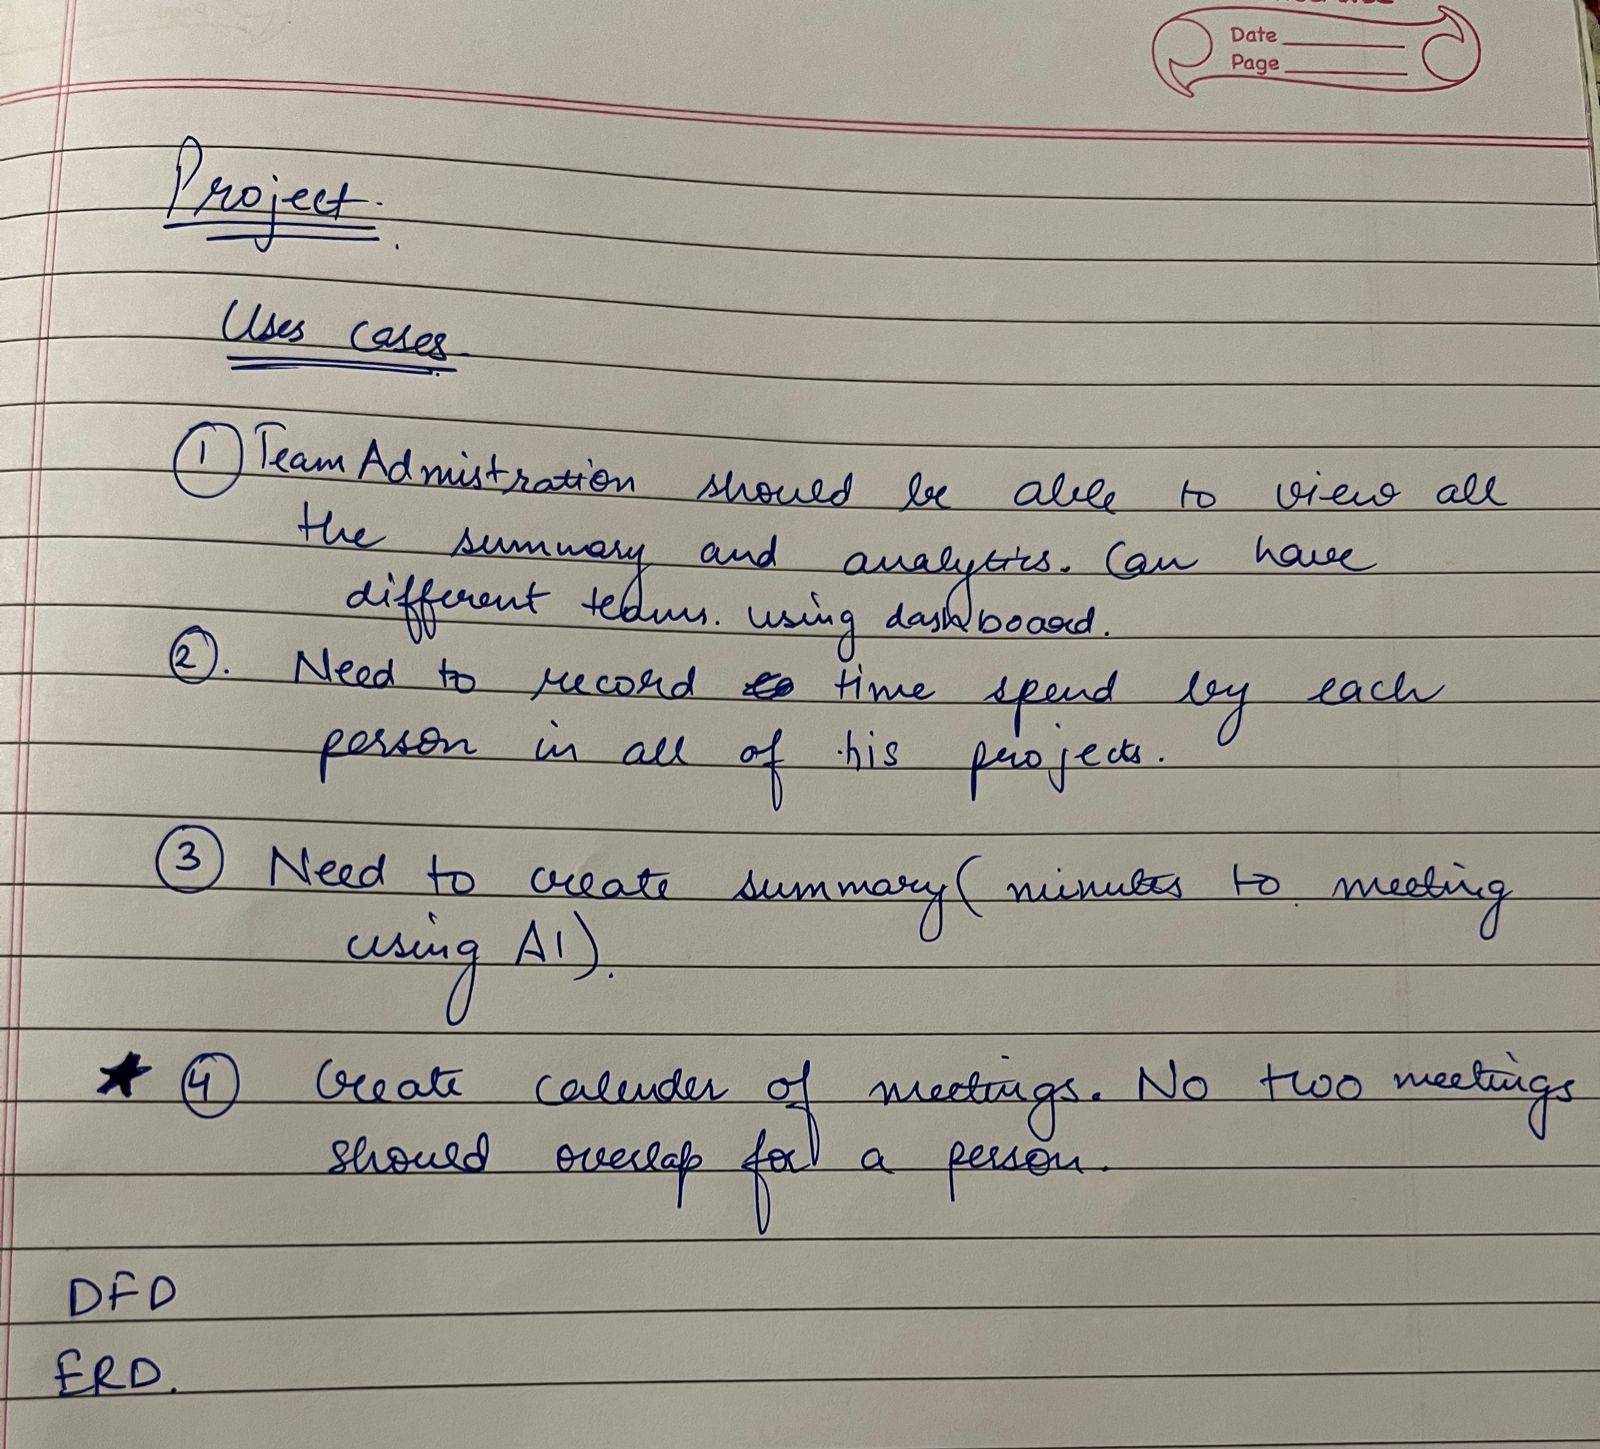 Date
Page
Project.
Uses cases.
① Team Admistration should be able to view all
the summary and analytics. Can have
different teams. using dashboard.
②. Need to record time spend by each
person in all of his projects.
③ Need to create summary( minutes to meeting
using AI).
★ ④ Create calender of meetings. No two meetings
should overlap for a person.
DFD
ERD.